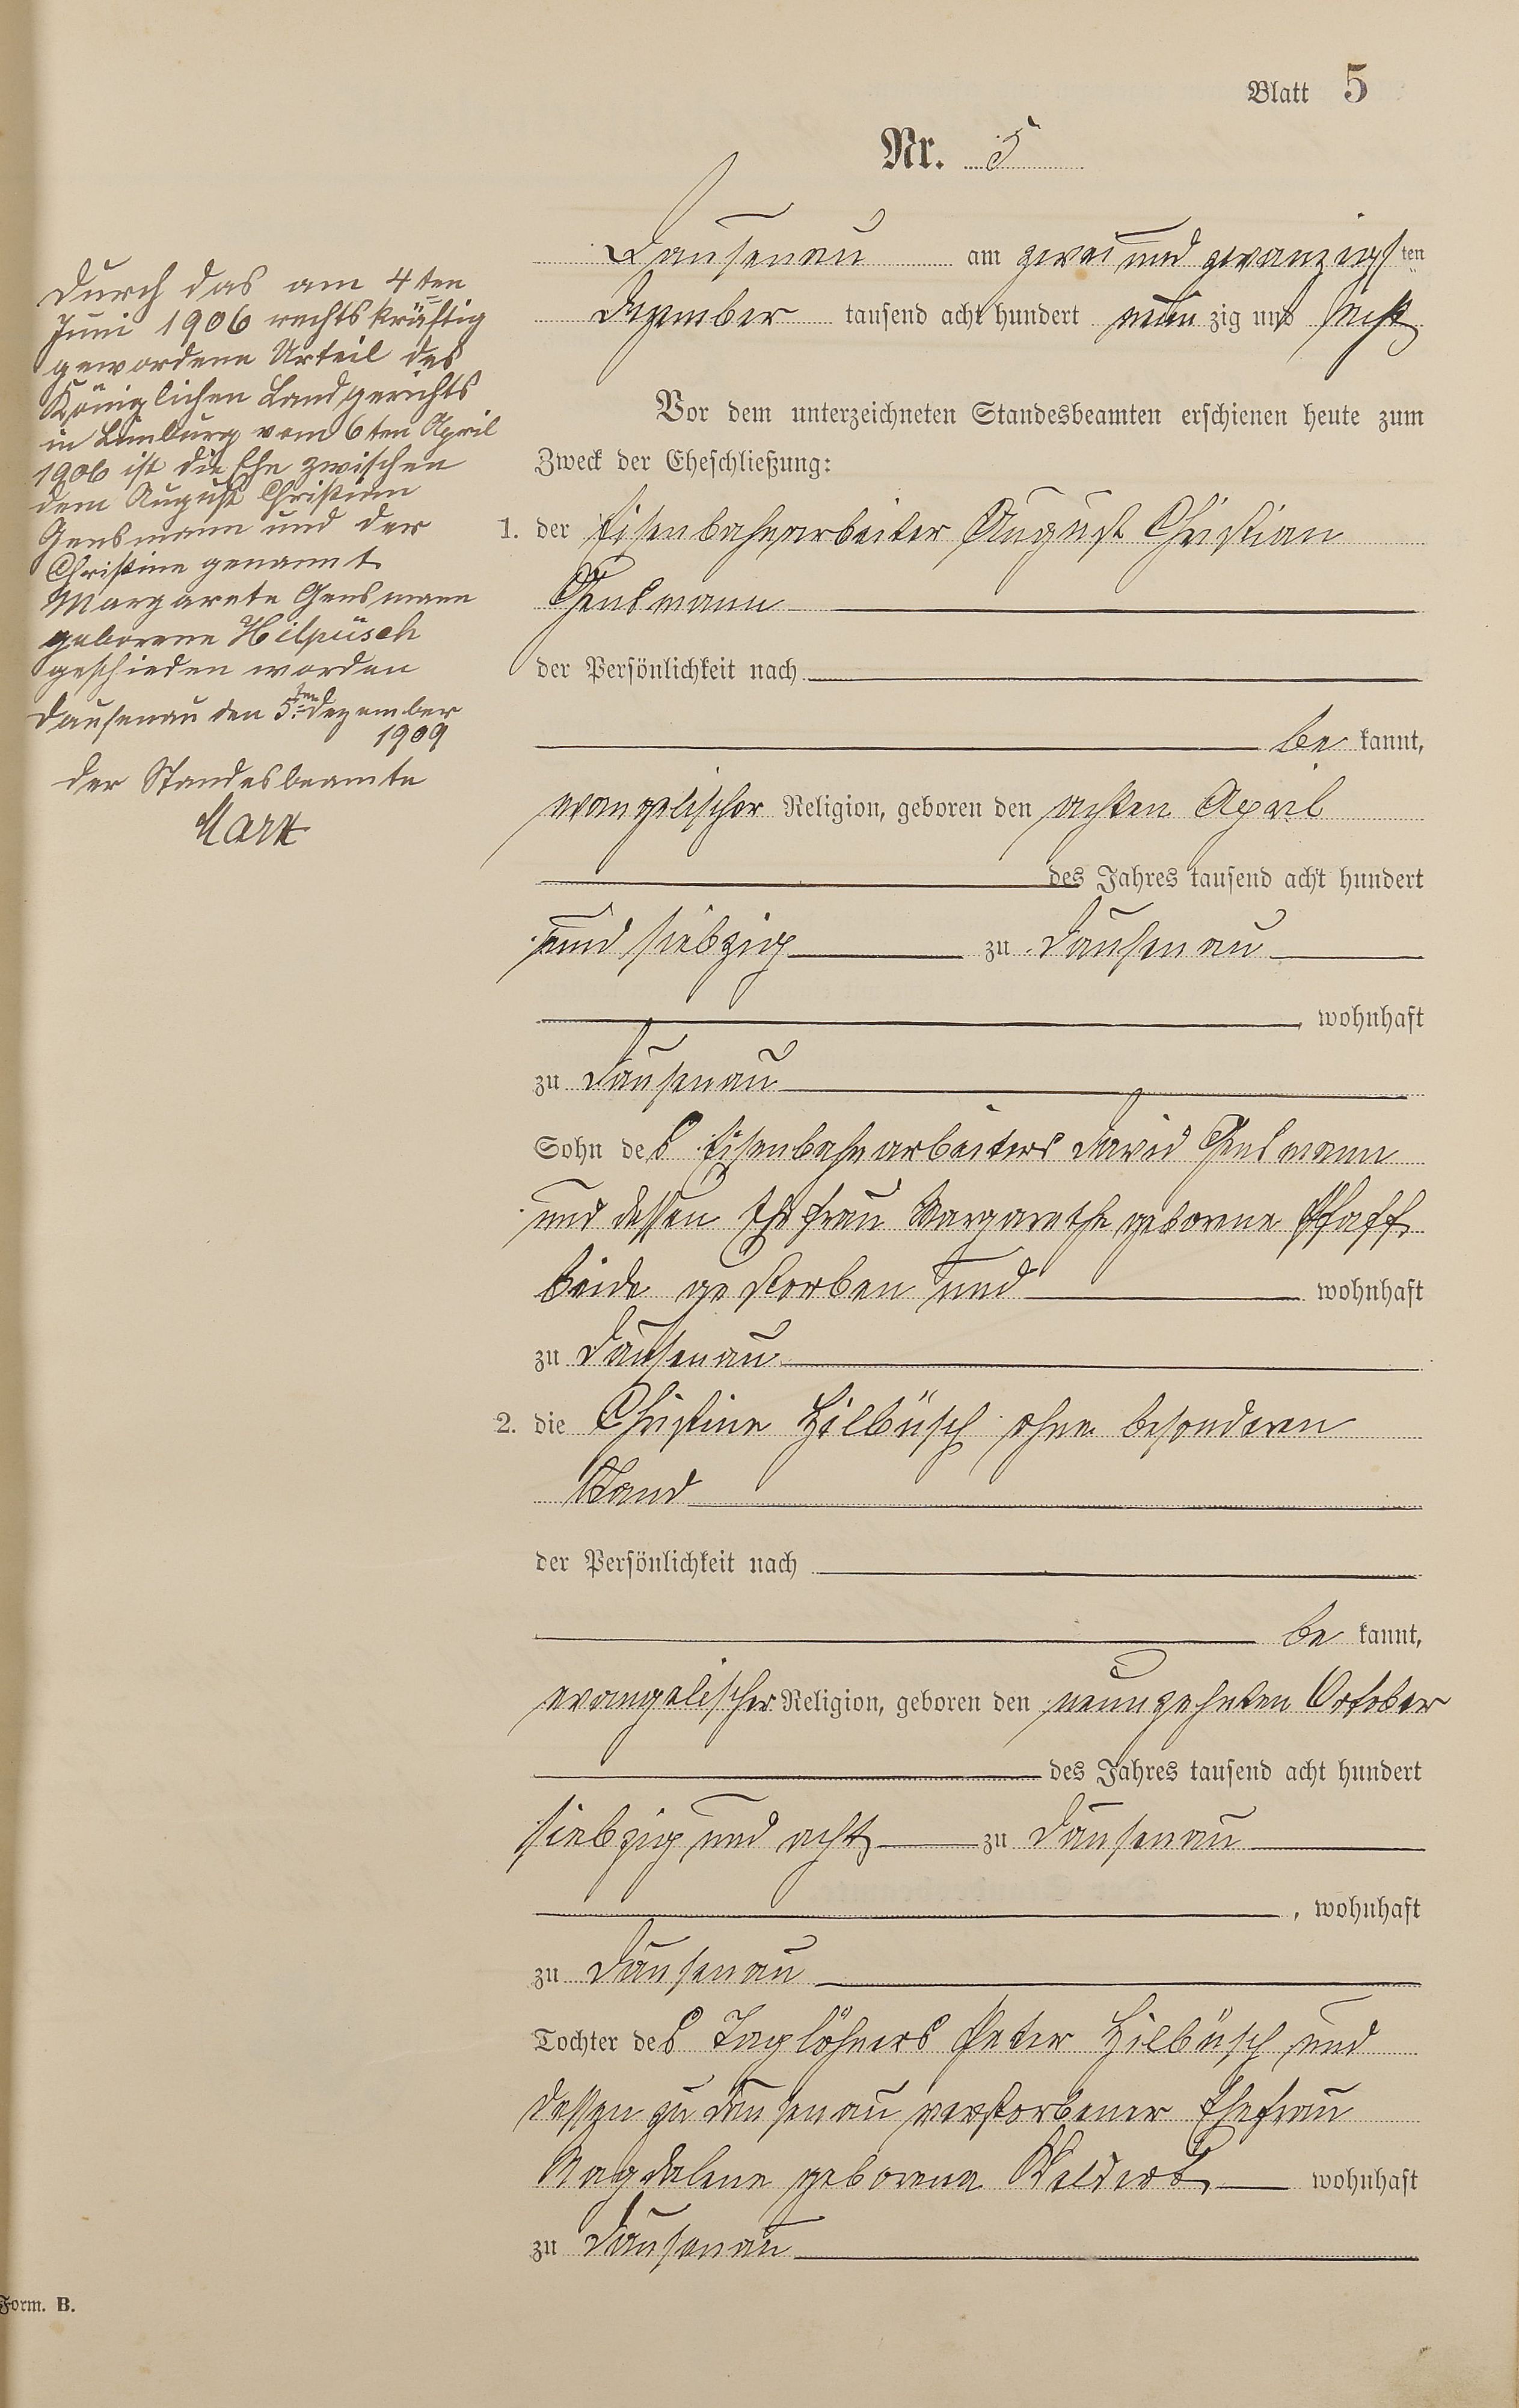 Blatt 5
Nr. 5
Dausenau am zwei und zwanzigsten
Dezember tausend acht hundert neunzig und sechs
Vor dem unterzeichneten Standesbeamten erschienen heute zum
Zweck der Eheschließung:
1. der Eisenbahnarbeiter August Christian
Gensmann
der Persönlichkeit nach
be kannt,
evangelischer Religion, geboren den achten April
des Jahres tausend acht hundert
und siebzig zu Dausenau
, wohnhaft
zu Dausenau
Sohn des Eisenbahnarbeiters David Gensmann
und dessen Ehefrau Margarethe geborene Pfaff
beide gestorben und wohnhaft
zu Dausenau
2. die Christine Hilbüsch ohne besonderen
Stand
der Persönlichkeit nach
be kannt,
evangelischer Religion, geboren den neunzehnten October
des Jahres tausend acht hundert
siebzig und acht zu Dausenau
, wohnhaft
zu Dausenau
Tochter des Taglöhners Peter Hilbüsch und
dessen zu Dausenau verstorbener Ehefrau
Magdalene geborene wohnhaft
zu Dausenau
Durch das am 4ten
Juni 1906 rechtskräftig
gewordene Urteil des
Königlichen Landgerichts
in Limburg vom 6ten April
1906 ist die Ehe zwischen
dem August Christian
Gensmann und der
Christine genannt
Margarete Gensmann
geborene Hilpüsch
geschieden worden
Dausenau den 5ten Dezember
1909
Der Standesbeamte
Form. B.